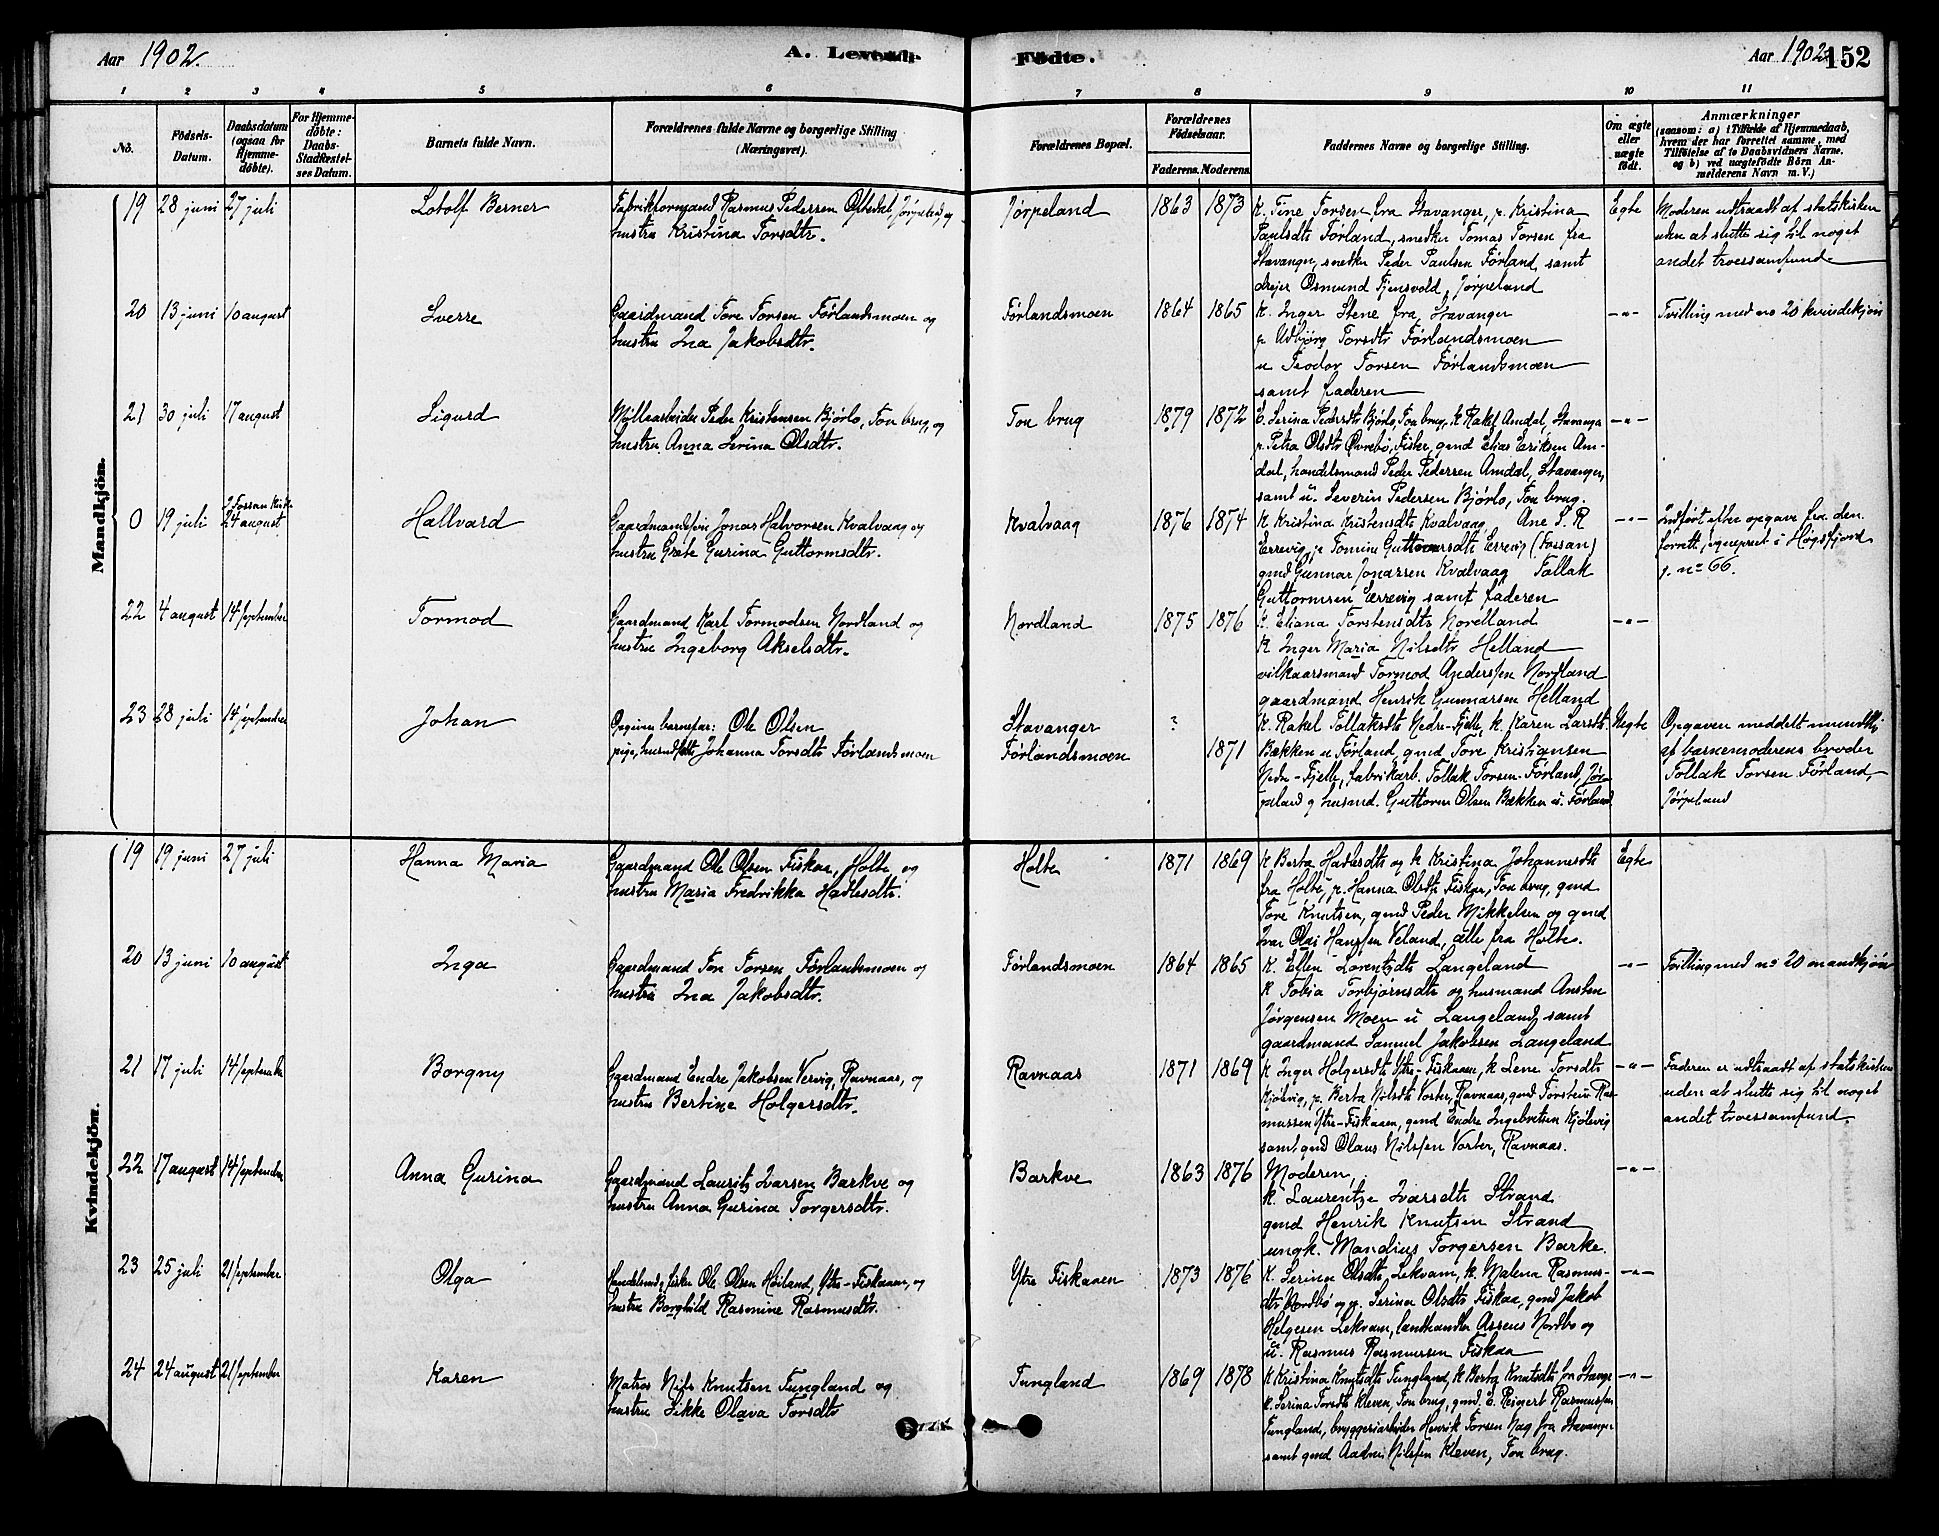 Aar 1902.
A. Levende
Fødte.
Aar 1902
152
1 2 3 4 5 6 7 8 9 10 11
No.
Fødsels-Datum.
Daabsdatum (ogsaa for Hjemmedøbte).
For Hjemmedøbte: Daabs-Stadfæstelses Datum.
Barnets fulde Navn.
Forældrenes fulde Navne og borgerlige Stilling (Næringsvei).
Forældrenes Bopæl.
Forældrenes Fødselsaar.
Faderens. Moderens.
Faddernes Navne og borgerlige Stilling.
Om ægte eller uægte født.
Anmærkninger (saasom: a) i Tilfælde af Hjemmedaab, hvem der har forrettet samme, med Tilføielse af to Daabsvidners Navne. og b) ved uægtefødte Börn Anmelderens Navn m. V.)
Mandkjön.
19 28 juni 27 juli Lotolf Berner
Fabrikformand Rasmus Pedersen Jørpeland, og
hustru Kristina Torsdtr.
Jørpeland 1863 1873
K. Tine Torsen fra Stavanger, p. Kristina
Paulsdtr Førland, snedker Tomas Torsen fra
Stavanger, snedker Peder Paulsen Førland samt
drejer Osmund Tjensvold, Jørpeland
Egte
Moderen udtraadt af statskirken
uden at slutte sig til noget
andet troessamfund
20 13 juni 10 august Sverre
Gaardmand Tore Torsen Førlandsmoen og
hustru Ina Jakobsdtr.
Førlandsmoen 1864 1865
K. Inger Stene fra Stavanger
p. Udbjørg Torsdtr Førlandsmoen
u Teodor Torsen Førlandsmoen
samt faderen
-"-
Tvilling med no 20 kvindekjøn
21 30 juli 17 august Sigurd
Møllearbeider Peder Kristensen Bjørlo, Tou brug, og
hustru Anna Serina Olsdtr.
Tou brug 1879 1872
E. Serina Pedersdtr Bjørlo, Tou brug, k Rakel Amdal, Stavanger
p. Petra Olsdtr Øvrebø, Fister, gmd Elias Eriksen Am-
dal, handelsmand Peder Pedersen Amdal, Stavanger,
samt u. Severin Pedersen Bjørlo, Tou brug.
-"-
0 19 juli I Fossan kirke 24 august Hallvard
Gaardmandssøn Jonas Halvorsen Kvalvaag og
hustru Grete Gurina Guttormsdtr.
Kvalvaag 1876 1874
K. Kristina Kristensdtr Kvalvaag Ane S. R
Errevig, p Tomine Guttormsdtr Errevig (Fossan)
gmd Gunnar Jonassen Kvalvaag Tollak
Guttormsen Errevig samt faderen
-"-
Indført efter opgave fra den
forrett. sognepræst i Høgsfjord
j. no 66.
22 4 august 14 september Tormod
Gaardmand Karl Tormodsen Nordland og
hustru Ingeborg Akselsdtr.
Nordland 1875 1876
K. Eliana Torstensdtr Nordland
K Inger Maria Nilsdtr Helland
vilkaarsmand Tormod Anderssen Nordland
gaardmand Henrik Gunnarsen Helland
-"-
23 28 juli 14 september Johan
Opgiven barnefar: Ole Olsen
pige, husmdsdatt. Johanna Torsdtr Førlandsmoen
Stavanger ?
Førlandsmoen 1871
K. Rakel Tollaksdtr Nedre-Fjelle, k. Karen Larsdtr
Bækken u Førland, gmd Tore Kristiansen
Nedre-Fjelle, fabrikarb. Tollak Torsen Førland, Jør-
peland og husmd. Guttorm Olsen Bækken u. Førland
Uegte
Opgaven meddelt mundtlig
af barnemoderens broder
Tollak Torsen Førland,
Jørpeland
Kvindekjön.
19 19 juni 27 juli Hanna Maria
Gaardmand Ole Olsen Fiskaa, Holte og
hustru Maria Fredrikka Hadlesdtr.
Holte 1871 1869
K Berta Hadlesdtr og k Kristina Johannesdtr
fra Holte, p. Hanna Olsdtr Fiskaa, Tou brug, gmd
Tore Knutsen, gmd Peder Mikkelsen og gmd
Ivar Olai Hanssen Veland, alle fra Holte.
Egte
20 13 juni 10 august Inga
Gaardmand Tore Torsen Førlandsmoen og
hustru Ina Jakobsdtr.
Førlandsmoen 1864 1865
K. Ellen Lorentzdtr Langeland
K Tobia Torbjørnsdtr og husmand Ansten
Jørgensen Moen u Langeland samt
gaardmand Samuel Jakobsen Langeland
-"-
Tvilling med no 20 mandkjøn
21 17 juli 14 september Borgny
Gaardmand Endre Jakobsen Vervig, Ravnaas, og
hustru Bertine Holgersdtr.
Ravnaas 1871 1869
K Inger Holgersdtr Ytre-Fiskaaen, k Lene Torsdtr
Kjølevig, p. Berta Nilsdtr Voster, Ravnaas, gmd Torstein Ras-
mussen Ytre-Fiskaaen, gmd Endre Ingebretsen Kjølevig
samt gmd Olaus Nilssen Voster, Ravnaas.
-"-
Faderen er udtraadt af statskirken
uden at slutte sig til noget
andet troessamfund.
22 17 august 14 september Anna Gurina
Gaardmand Lauritz Ivarsen Barkve og
hustru Anna Gurina Torgersdtr.
Barkve 1863 1876
Moderen,
k. Laurentze Ivarsdtr Strand
gmd Henrik Knutsen Strand
ungk. Mandius Torgersen Barke.
-"-
23 25 juli 21 september Olga
Handelsmd, fisker Ole Olsen Høiland, Ytre-Fiskaaen, og
hustru Borghild Rasmine Rasmusdtr.
Ytre Fiskaaen 1873 1876
K. Serina Olsdtr Lekvam, k. Malena Rasmus-
dtr Nordbø og p. Serina Olsdtr Fiskaa, gmd Jakob
Helgesen Lekvam, landhandler Assens Nordbø og
u. Rasmus Rasmussen Fiskaa
-"-
24 24 august 21 september Karen
Matros Nils Knutsen Tungland og
hustru Sikke Olava Torsdtr
Tungland 1869 1878
K Kristina Knutsdtr Tungland, k Berta Knutsdtr fra Stavanger
k. Serina Torsdtr Kleven, Tou brug, gmd. E. Reinert Rasmussen
Tungland, bryggeriarbeider Henrik Torsen Nag fra Stavanger
samt gmd Aadne Nilssen Kleven, Tou brug.
-"-